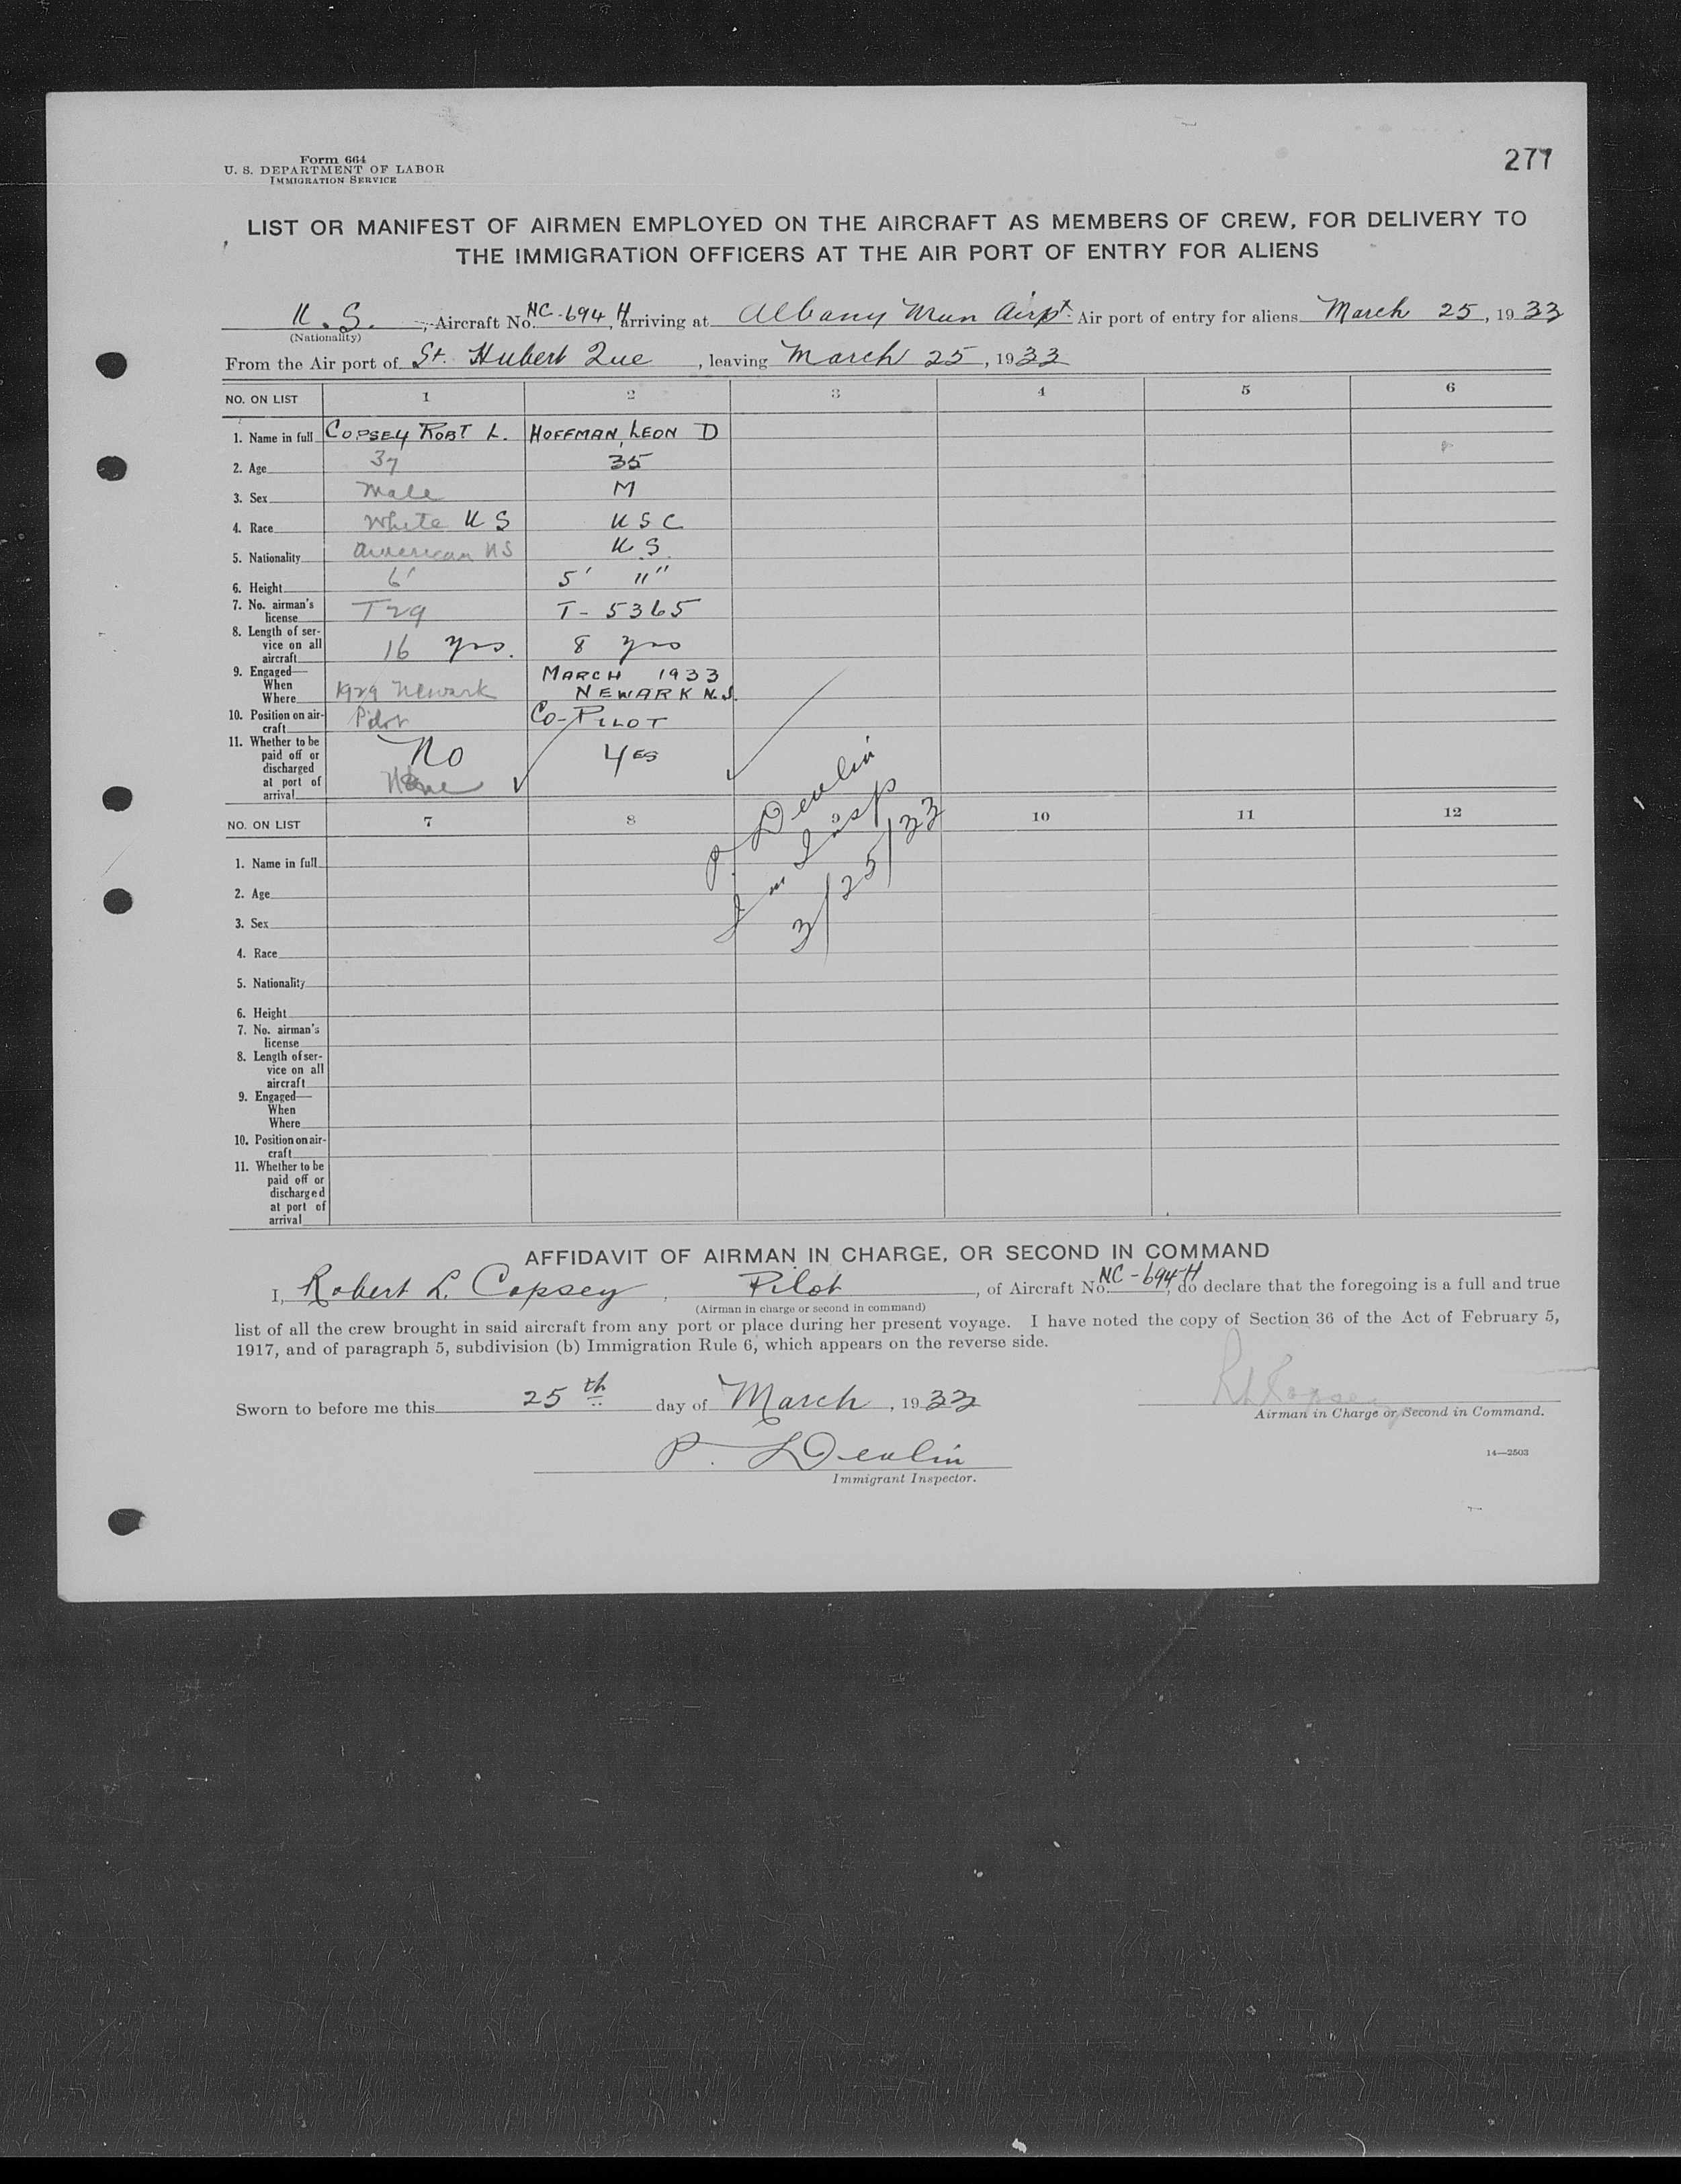 Form 664
U. S. DEPARTMENT OF LABOR
IMMIGRATION SERVICE
277
LIST OR MANIFEST OF AIRMEN EMPLOYED ON THE AIRCRAFT AS MEMBERS OF CREW, FOR DELIVERY TO
THE IMMIGRATION OFFICERS AT THE AIR PORT OF ENTRY FOR ALIENS
U. S. , Aircraft No. NC-694 H, arriving at Albany Mun Airpt. Air port of entry for aliens March 25, 1933
(Nationality)
From the Air port of St. Hubert Que , leaving March 25, 1933
NO. ON LIST 1 2 3 4 5 6
1. Name in full COPSEY ROBT L. HOFFMAN, LEON D
2. Age 37 35
3. Sex Male M
4. Race White U S U S C
5. Nationality American US U. S.
6. Height 6' 5' 11"
7. No. airman's license T29 T-5365
8. Length of service on all aircraft 16 yrs. 8 yrs
9. Engaged— When Where 1929 Newark MARCH 1933 NEWARK N.J.
10. Position on aircraft Pilot CO-PILOT
11. Whether to be paid off or discharged at port of arrival No None YES
P. Devlin
Im Insp
3/25/33
NO. ON LIST 7 8 9 10 11 12
1. Name in full
2. Age
3. Sex
4. Race
5. Nationality
6. Height
7. No. airman's license
8. Length of service on all aircraft
9. Engaged— When Where
10. Position on aircraft
11. Whether to be paid off or discharged at port of arrival
AFFIDAVIT OF AIRMAN IN CHARGE, OR SECOND IN COMMAND
I, Robert L. Copsey, Pilot, of Aircraft No. NC-694-H, do declare that the foregoing is a full and true
(Airman in charge or second in command)
list of all the crew brought in said aircraft from any port or place during her present voyage. I have noted the copy of Section 36 of the Act of February 5,
1917, and of paragraph 5, subdivision (b) Immigration Rule 6, which appears on the reverse side.
Sworn to before me this 25th day of March, 1933
R L Copsey
Airman in Charge or Second in Command.
P. Devlin
Immigrant Inspector.
14—2503